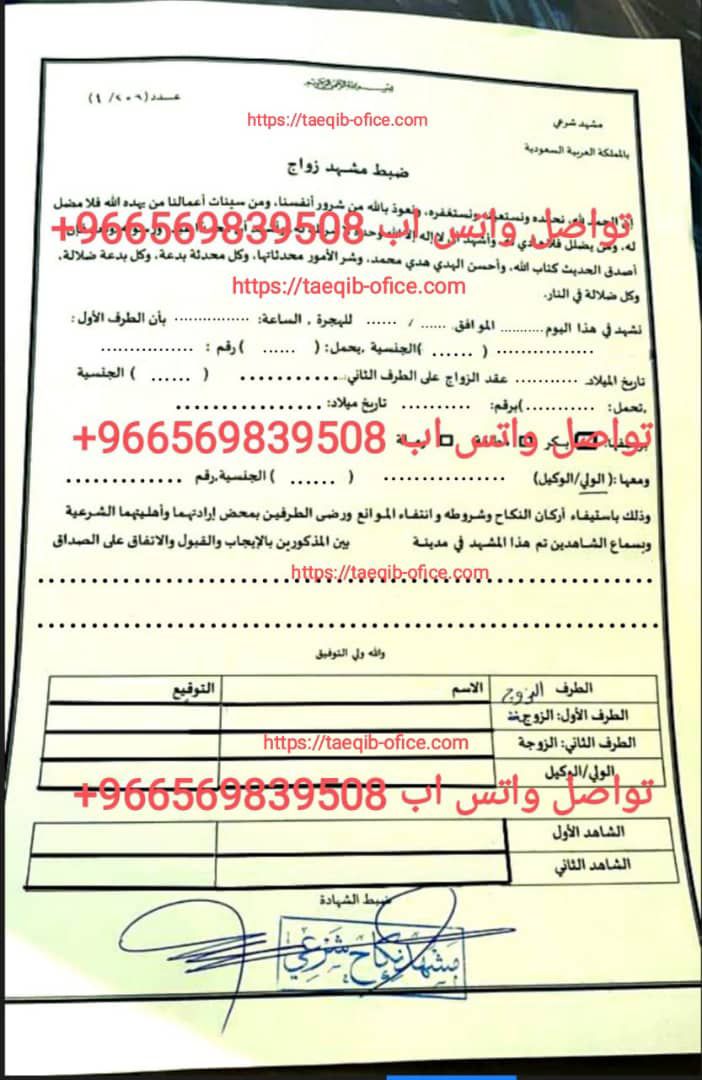 بسم الله الرحمن الرحيم
عدد (٢٠٦ / ٤)
https://taeqib-ofice.com
مشهد شرعي
بالمملكة العربية السعودية
ضبط مشهد زواج
إن الحمد لله، نحمده ونستعينه ونستغفره، ونعوذ بالله من شرور أنفسنا، ومن سيئات أعمالنا من يهده الله فلا مضل
تواصل واتس اب 966569839508+
له، ومن يضلل فلا هادي له وأشهد أن لا إله إلا الله وحده لا شريك له
أصدق الحديث كتاب الله، وأحسن الهدي هدي محمد، وشر الأمور محدثاتها، وكل محدثة بدعة، وكل بدعة ضلالة,
https://taeqib-ofice.com
وكل ضلالة في النار.
نشهد في هذا اليوم .......... الموافق ...... / ...... للهجرة , الساعة: ............... بأن الطرف الأول:
................ ( ...... )الجنسية ,يحمل: ( ...... ) رقم : ................
تاريخ الميلاد ........... عقد الزواج على الطرف الثاني: ........... ( ...... ) الجنسية
,تحمل: (...........)برقم: ........... تاريخ ميلاد: ................
تواصل واتس اب 966569839508+
بكر
ومعها :( الولي/الوكيل) ................ ( ...... ) الجنسية,رقم ................
وذلك باستيفاء أركان النكاح وشروطه و انتفاء الموانع ورضى الطرفين بمحض إرادتهما وأهليتهما الشرعية
وبسماع الشاهدين تم هذا المشهد في مدينة بين المذكورين بالإيجاب والقبول والاتفاق على الصداق
https://taeqib-ofice.com
والله ولي التوفيق
الطرف الزوج الاسم التوقيع
الطرف الأول: الزوج
الطرف الثاني: الزوجة
https://taeqib-ofice.com
الولي/الوكيل
تواصل واتس اب 966569839508+
الشاهد الأول
الشاهد الثاني
ضبط الشهادة
مشهد نكاح شرعي